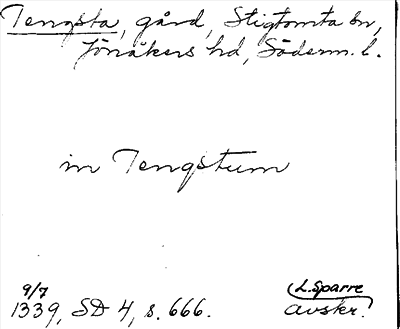 Tengsta, gård, Stigtomta sn,
Jönåkers hd, Söderm. l.
in Tengstum
9/7
1339, SD 4, s. 666.
L. Sparre
avskr.